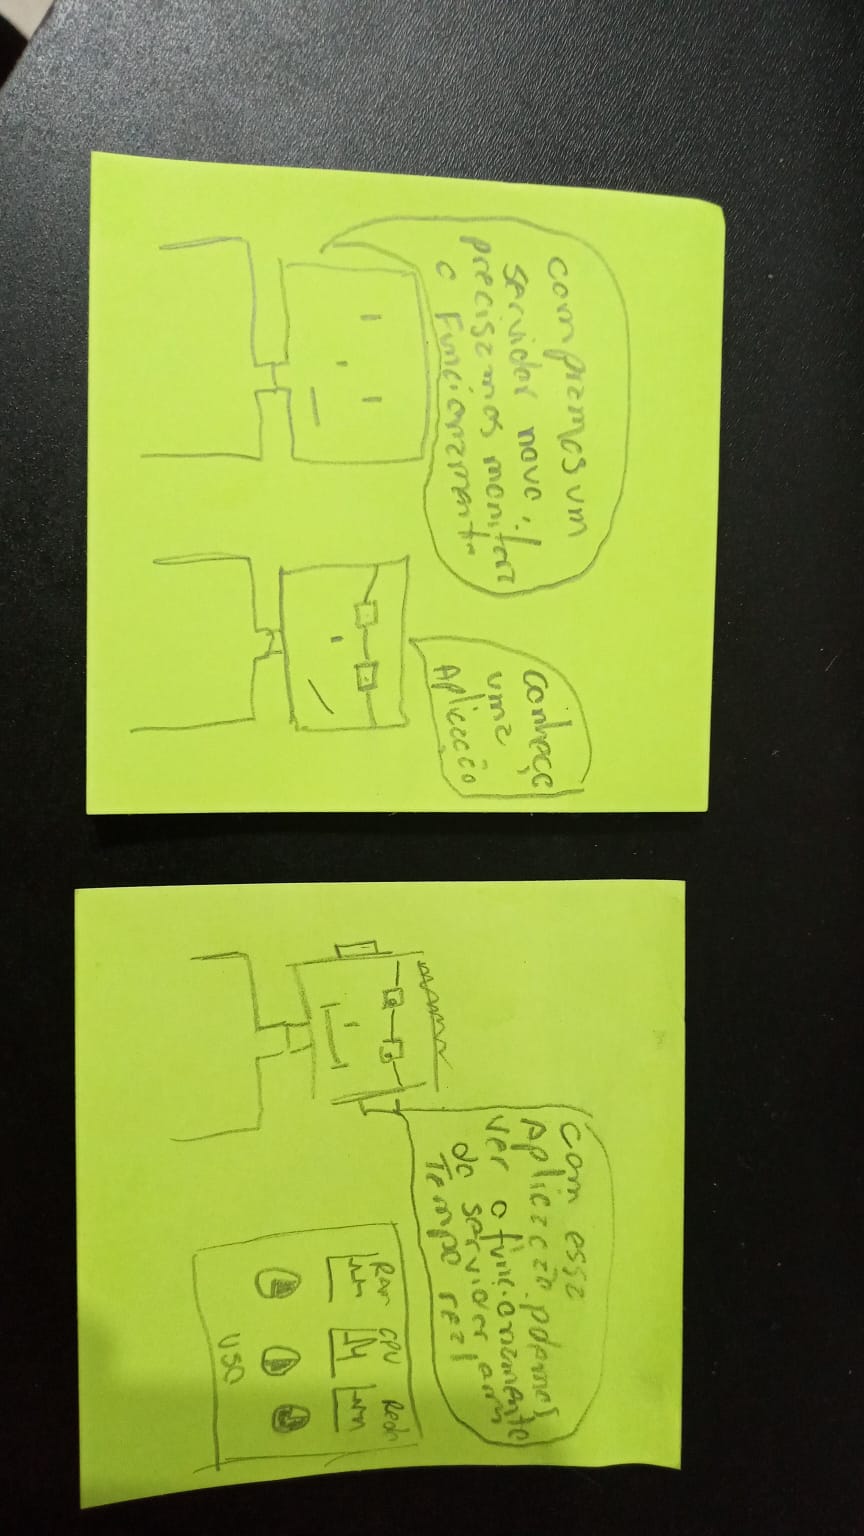 compramos um
servidor novo,
precisamos monitorar
o Funcionamento
conheço
uma
Aplicação
com essa
Aplicação podemos
ver o funcionamento
do servidor em
Tempo real
Ram CPU Rede
USO